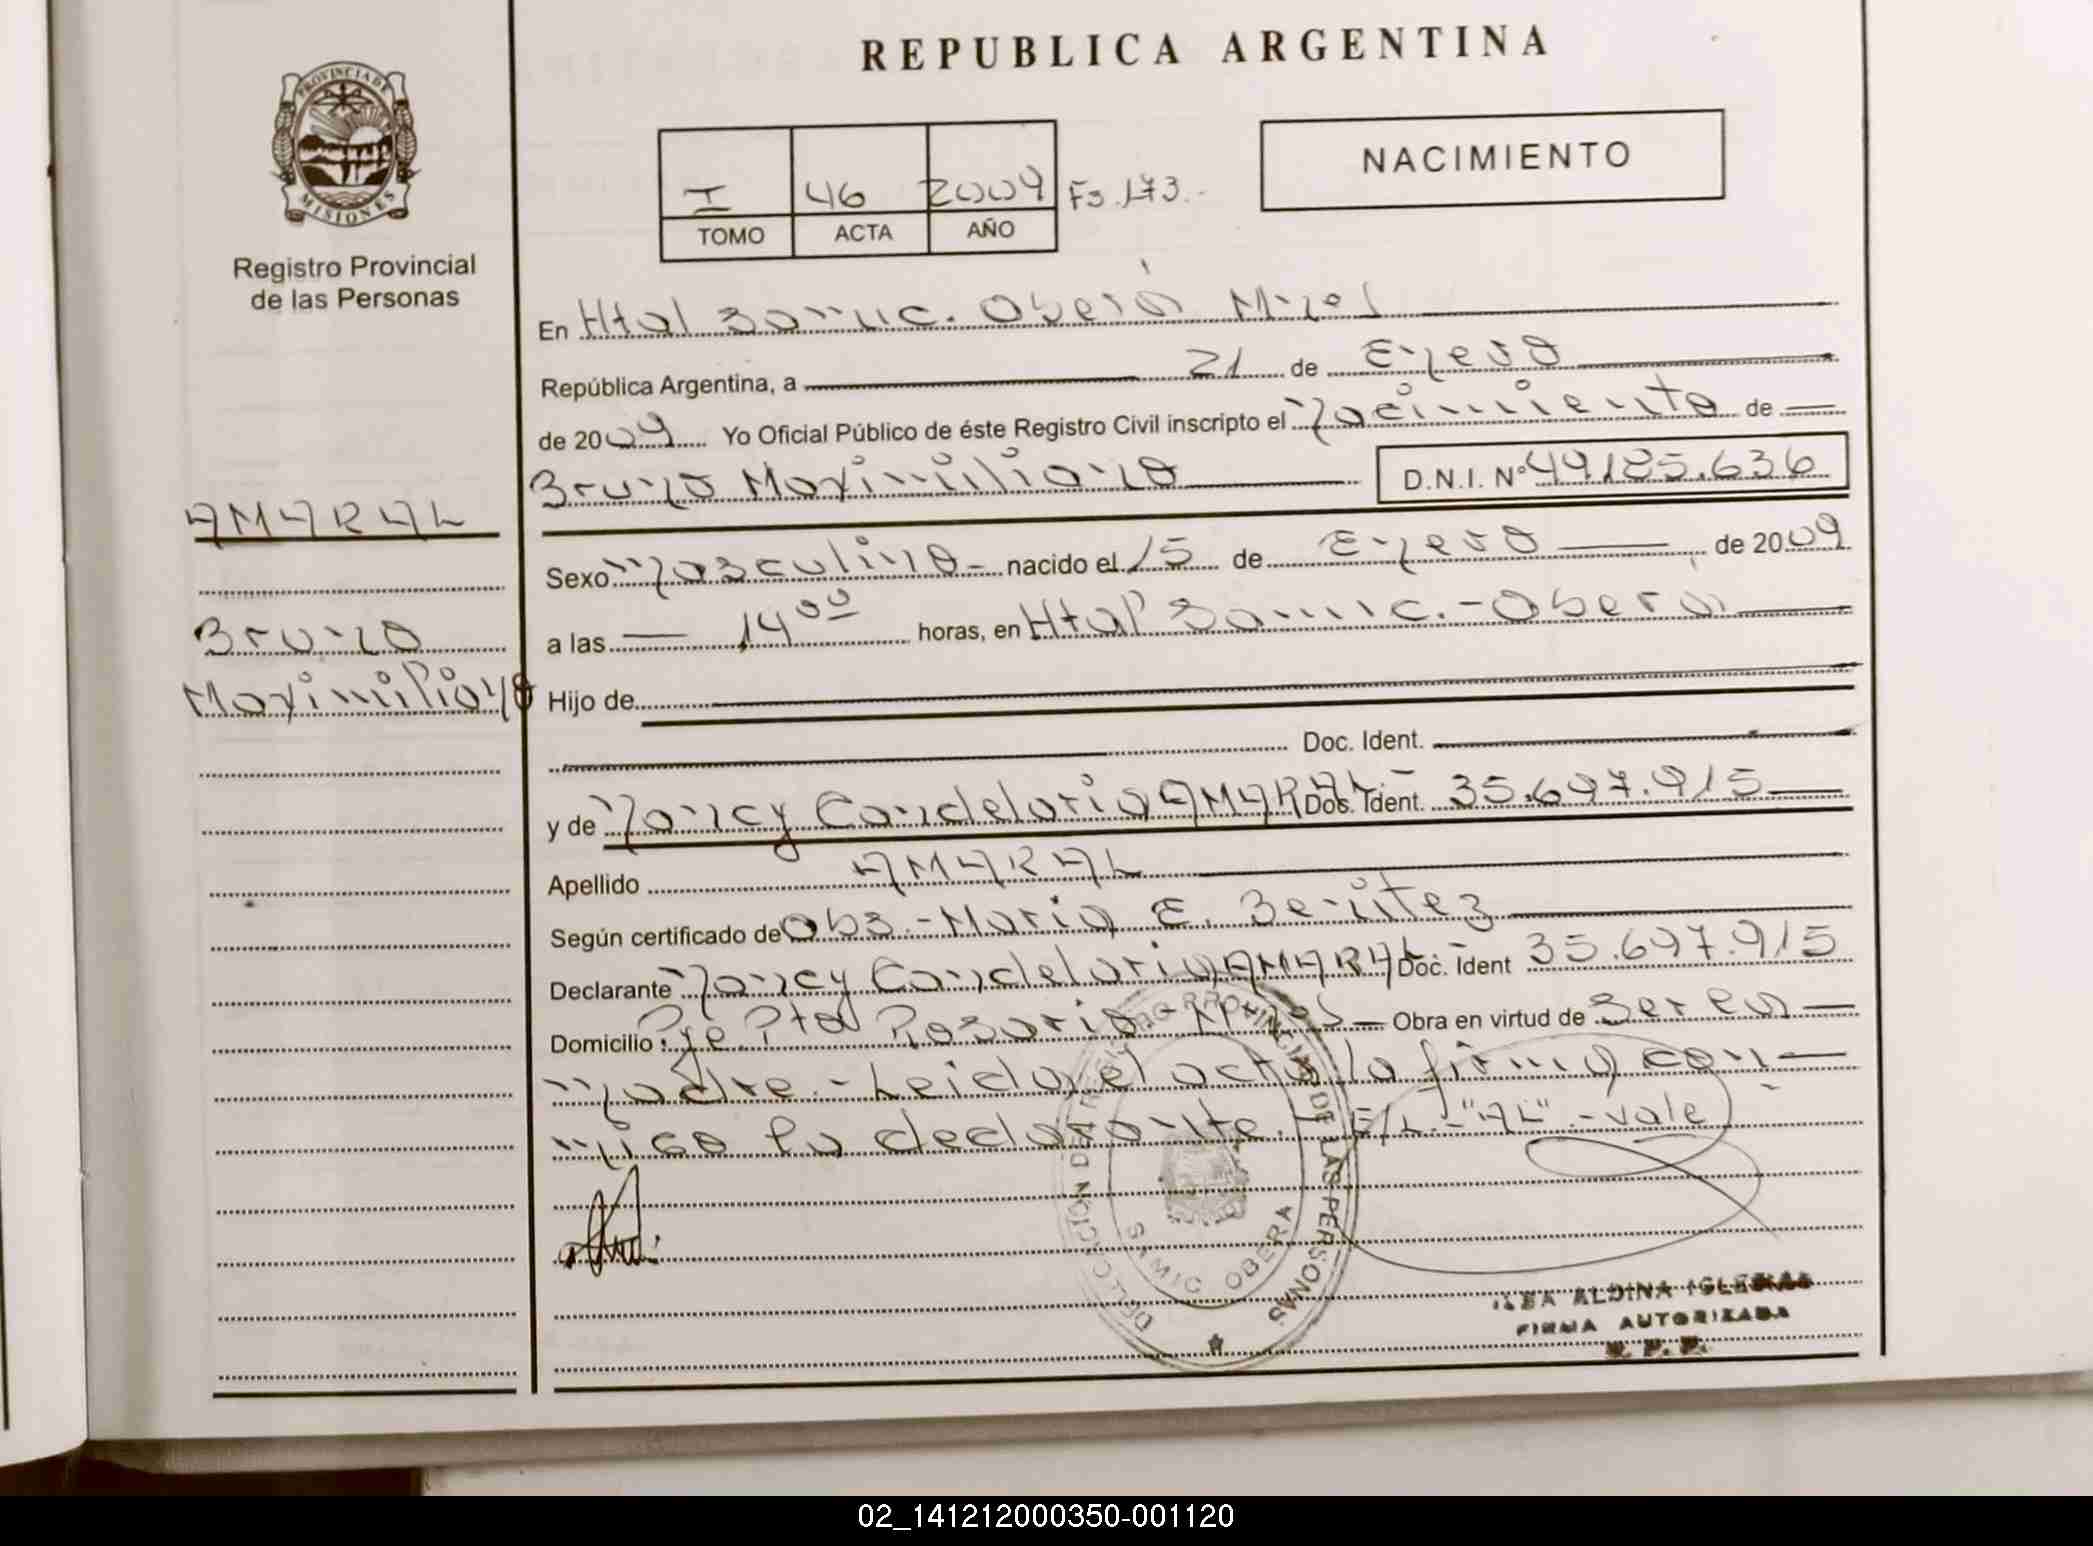 REPUBLICA ARGENTINA
PROVINCIA DE
MISIONES
Registro Provincial
de las Personas
NACIMIENTO
I 46 2009 Fs. 173.-
TOMO ACTA AÑO
En Htal Samic. Oberá Mnes
República Argentina, a 21 de Enero
de 2009 Yo Oficial Público de éste Registro Civil inscripto el Nacimiento de
Bruno Maximiliano D.N.I. Nº 49.185.636
AMARAL
Bruno
Maximiliano
Sexo Masculino nacido el 15 de Enero de 2009
a las 14 00 horas, en Htal Samic. - Oberá
Hijo de
Doc. Ident.
y de Nancy Candelaria AMARAL.- Doc. Ident. 35.697.915
Apellido AMARAL
Según certificado de Obs. - Maria E. Benitez
Declarante Nancy Candelaria AMARAL.- Doc. Ident 35.697.915
Domicilio: Pje. Pta Rosario - Mnes - Obra en virtud de Ser la
madre. - Leida el acta la firma con-
migo la declarante. - E/L. - "AL" - vale
DELEGACION DE REGISTRO PROVINCIAL DE LAS PERSONAS
SAMIC OBERA
ILEA ALDINA IGLESIAS
FIRMA AUTORIZADA
R. P. P.
02_141212000350-001120